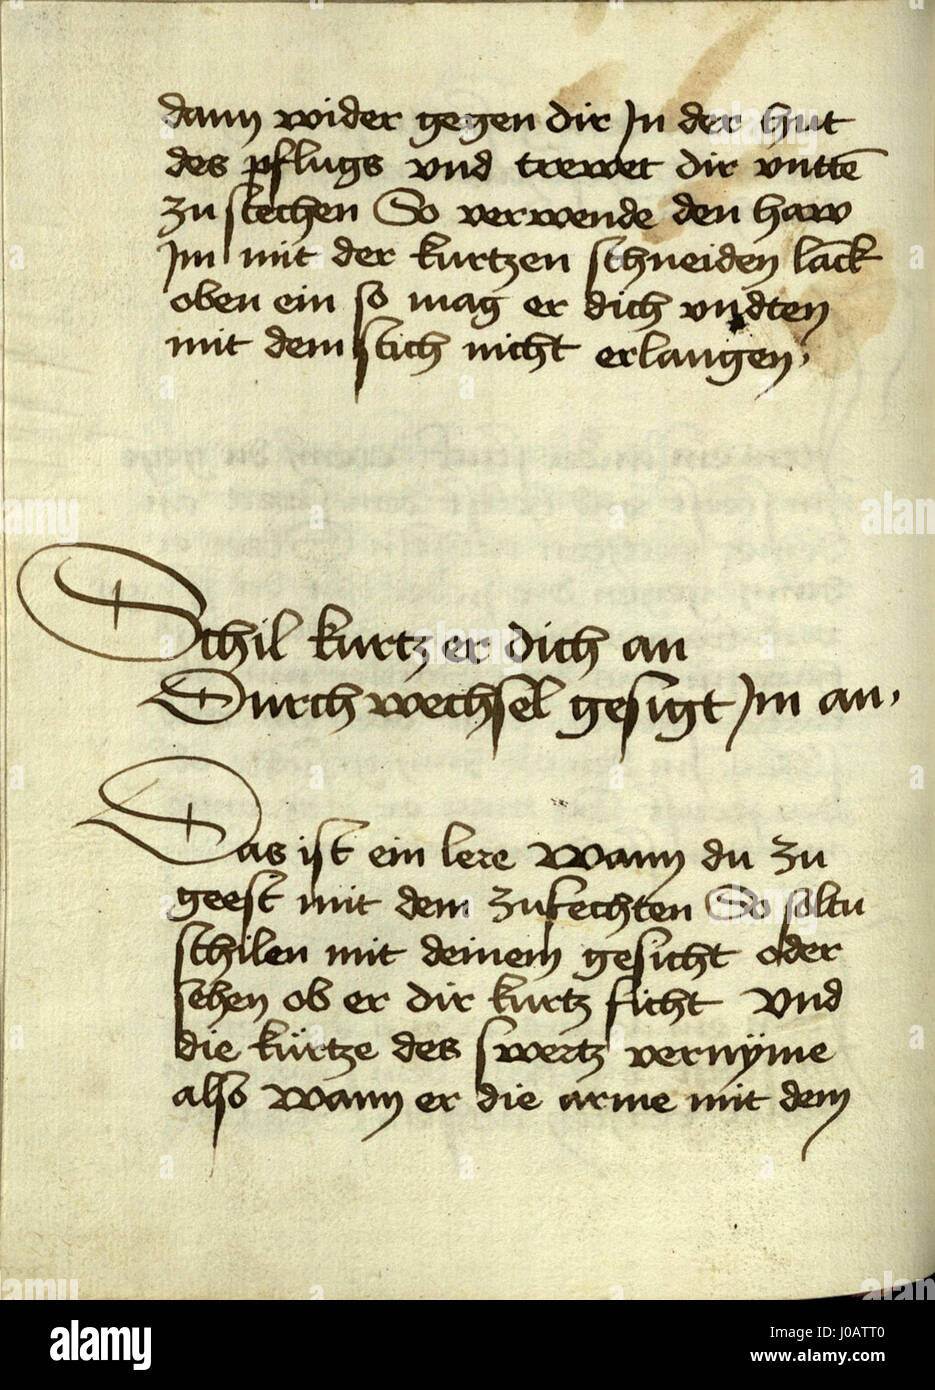 dann wider gegen dir Jn der hut
des pflugs vnd trewet dir vnttē
zu stechen So verwende den haw
Jm mit der kurtzen schneiden lāck
oben ein so mag er dich vndten
mit dem stich nicht erlangen.
Schil kurtz er dich an
Durch wechsel gesigt Jm an.
Das ist ein lere Wann du zu
geest mit dem zufechten So soltu
schilen mit deinem gesicht oder
sehen ob er dir kurtz ficht Vnd
die kürtze des swertz vernÿme
also Wann er die arme mit dem
alamy
Image ID: J0ATT0
www.alamy.com